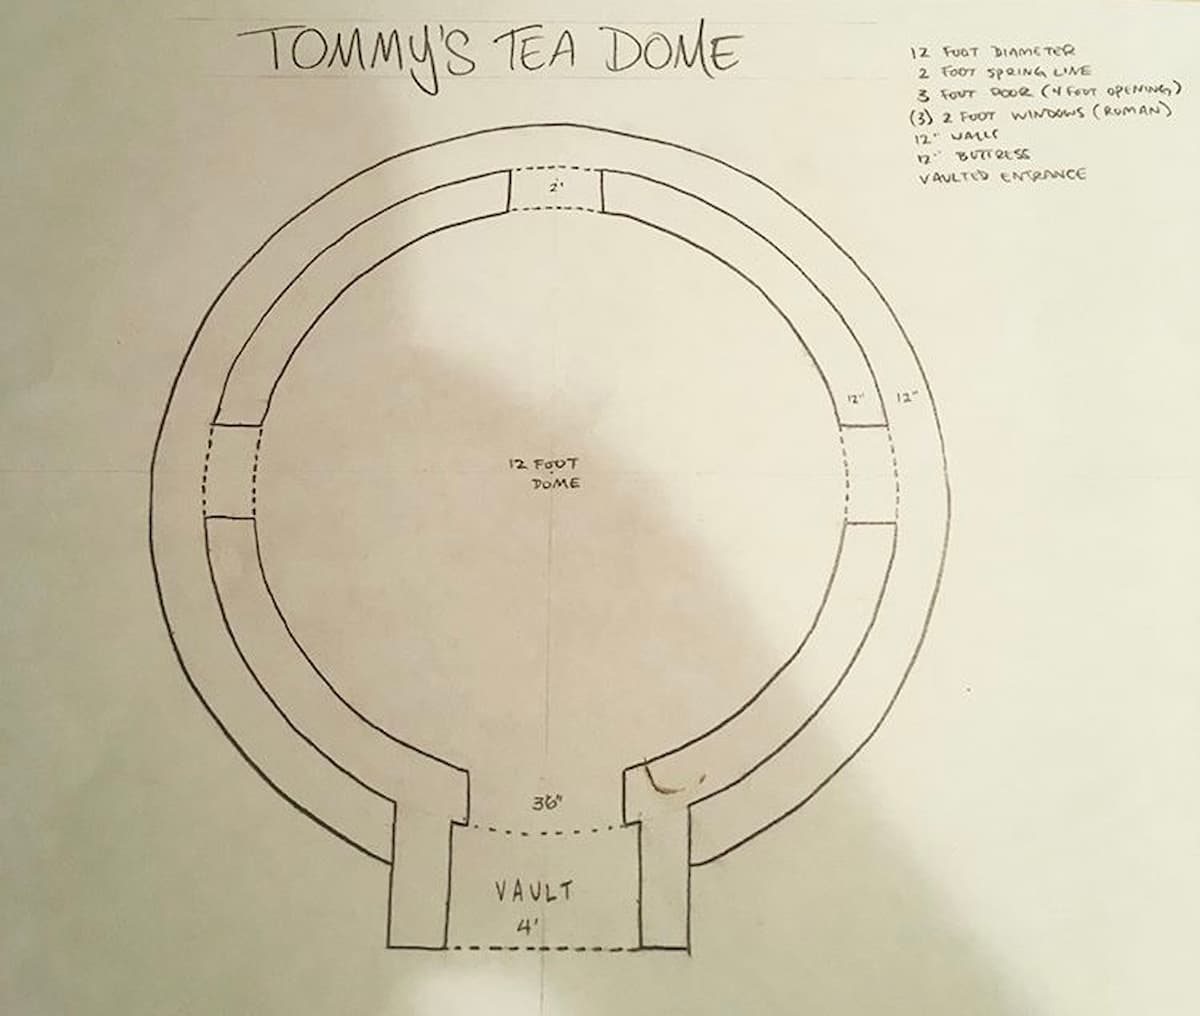 TOMMY'S TEA DOME
12 FOOT DIAMETER
2 FOOT SPRING LINE
3 FOOT DOOR (4 FOOT OPENING)
(3) 2 FOOT WINDOWS (ROMAN)
12" WALLS
12" BUTTRESS
VAULTED ENTRANCE
2'
12"
12"
12 FOOT
DOME
36"
VAULT
4'